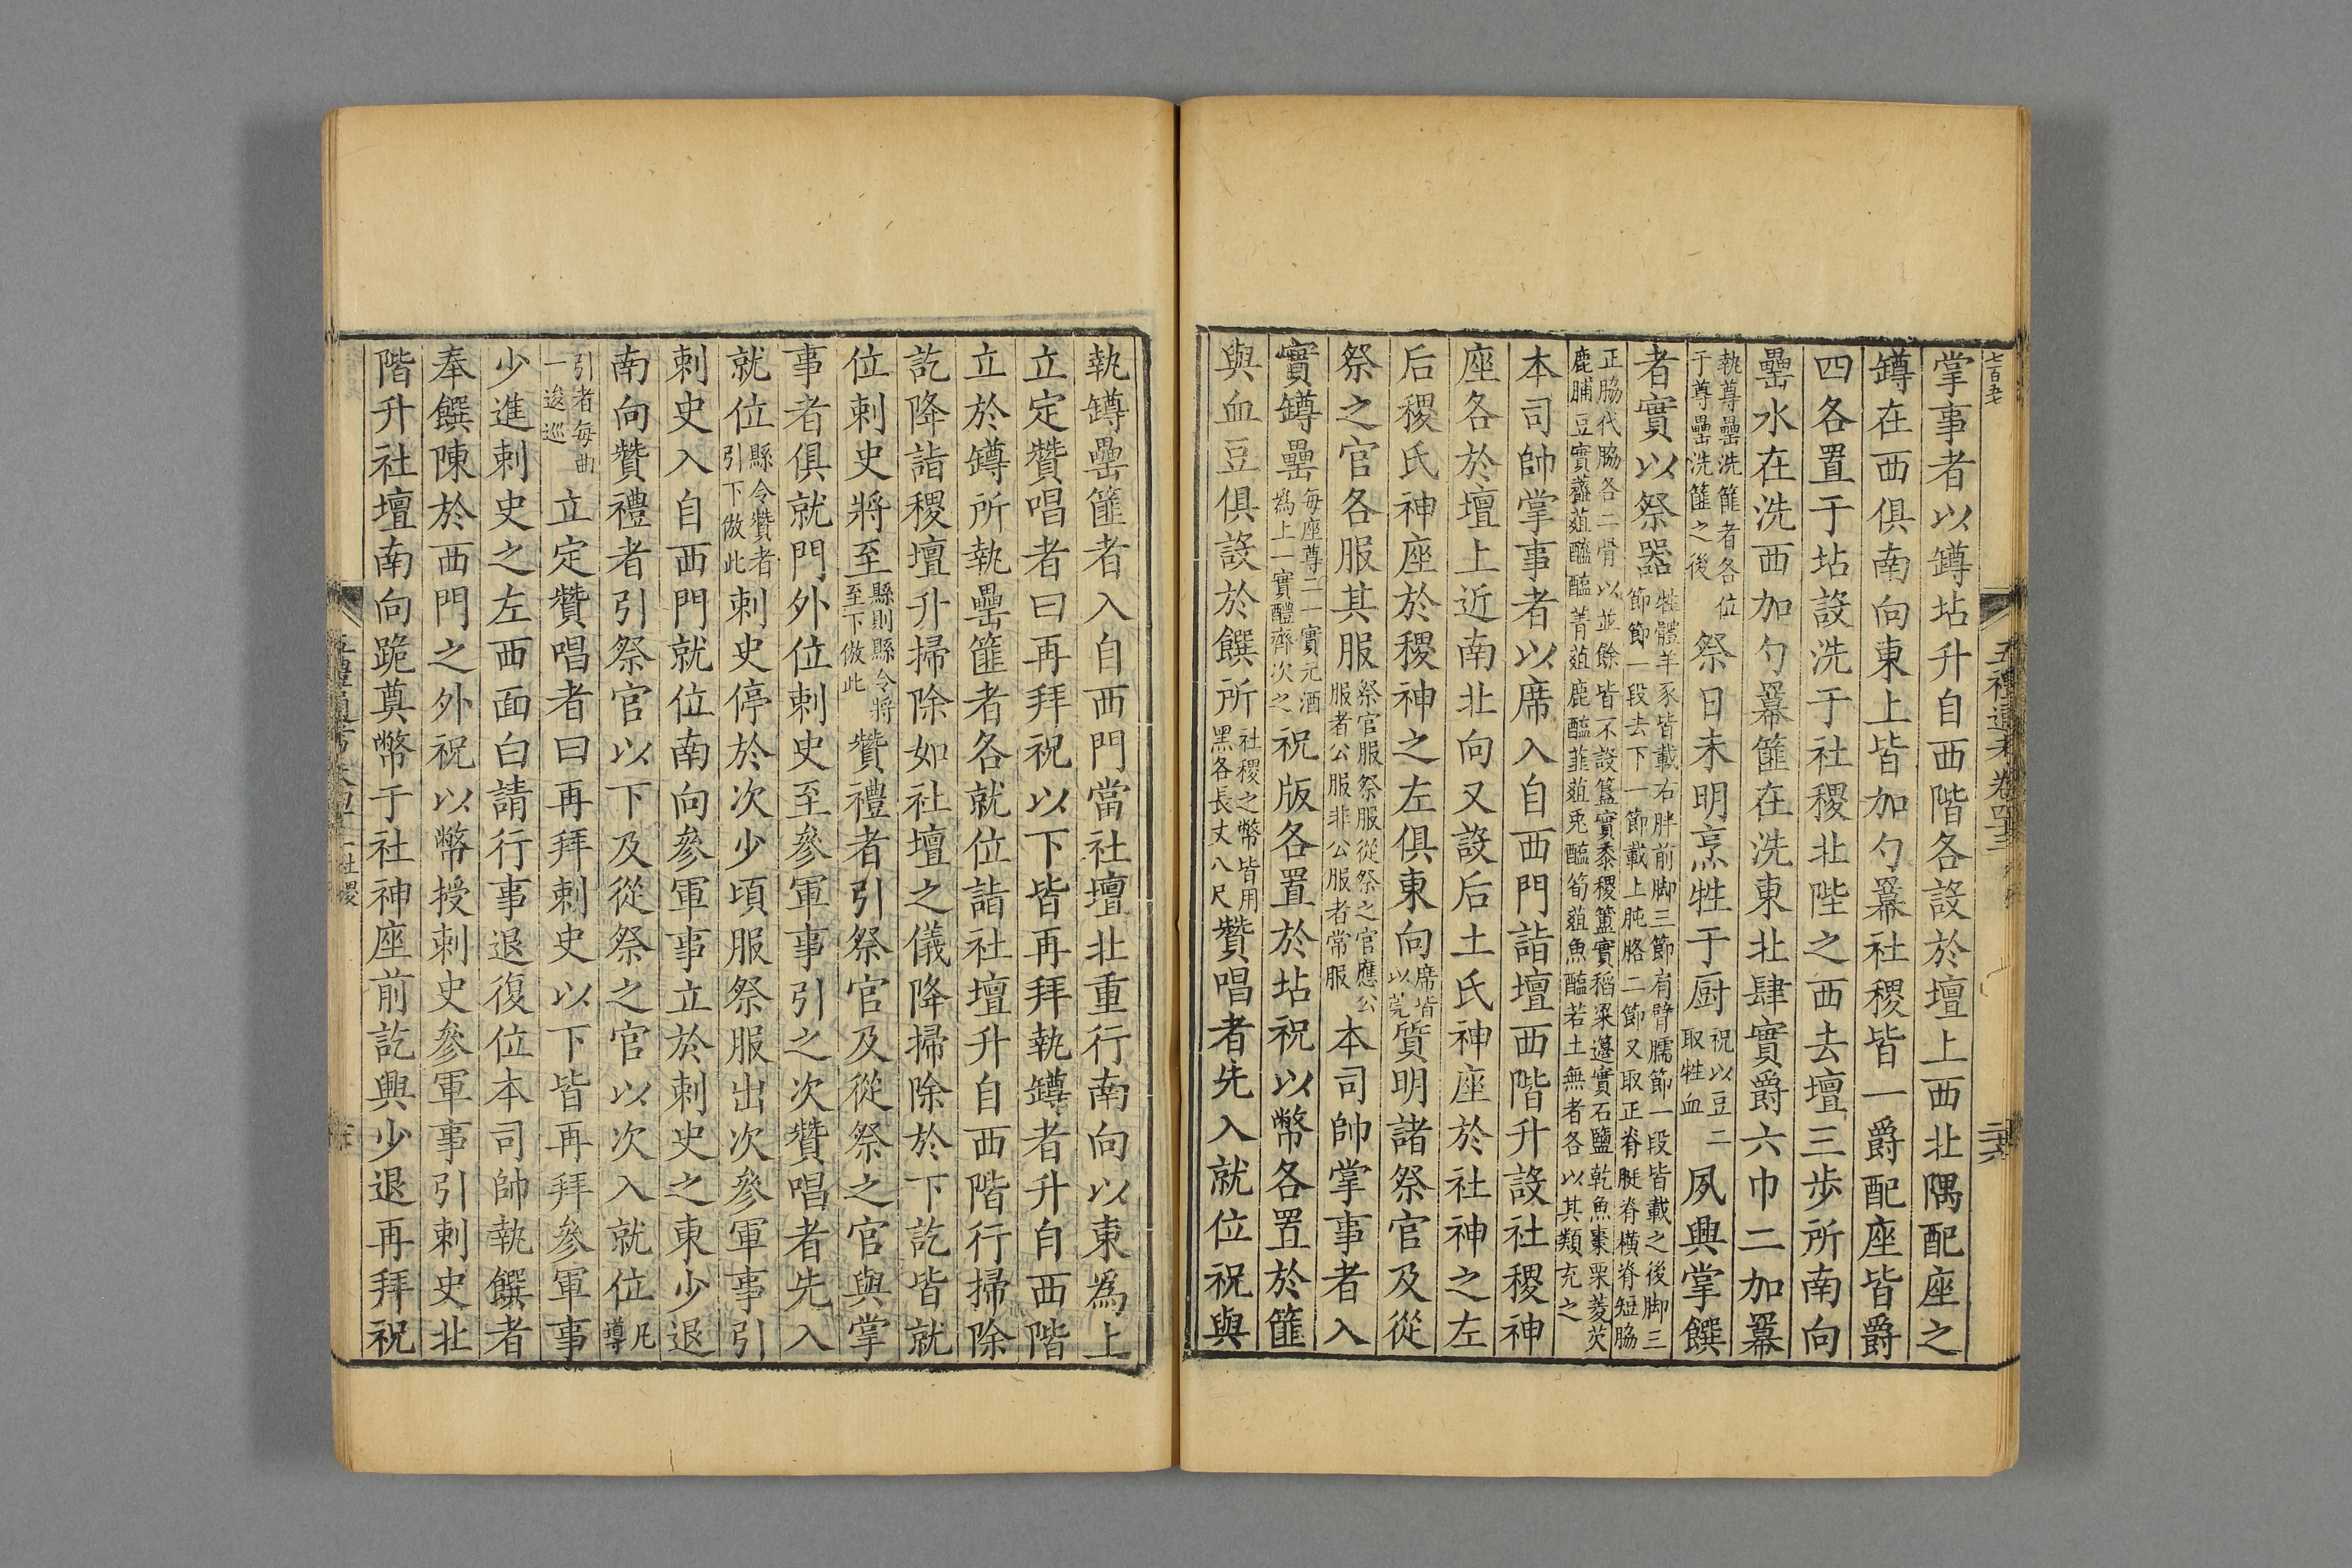 掌事者以罇坫升自西階各設於壇上西北隅配座之
罇在西俱南向東上皆加勺羃社稷皆一爵配座皆爵
四各置于坫設洗于社稷北陛之西去壇三步所南向
罍水在洗西加勺羃篚在洗東北肆實爵六巾二加羃
執尊罍洗篚者各位于尊罍洗篚之後祭日未明烹牲于厨祝以豆二取牲血夙興掌饌
者實以祭器牲體羊豕皆載右胖前脚三節肩臂臑節一段皆載之後脚三節節一段去下一節載上肫胳二節又取正脊脡脊橫脊短脇
正脇代脇各二骨以並餘皆不設簋實黍稷簠實稻粱籩實石鹽乾魚棗栗菱芡鹿脯豆實虀葅醓醢菁葅鹿醢韮葅兎醢筍葅魚醢若土無者各以其類充之
本司帥掌事者以席入自西門詣壇西階升設社稷神
座各於壇上近南北向又設后土氏神座於社神之左
后稷氏神座於稷神之左俱東向席皆以莞質明諸祭官及從
祭之官各服其服祭官服祭服從祭之官應公服者公服非公服者常服本司帥掌事者入
實罇罍每座尊二一實元酒爲上一實醴齊次之祝版各置於坫祝以幣各置於篚
與血豆俱設於饌所社稷之幣皆用黑各長丈八尺贊唱者先入就位祝與
執罇罍篚者入自西門當社壇北重行南向以東爲上
立定贊唱者曰再拜祝以下皆再拜執罇者升自西階
立於罇所執罍篚者各就位詣社壇升自西階行掃除
訖降詣稷壇升掃除如社壇之儀降掃除於下訖皆就
位刺史將至縣則縣令將至下倣此贊禮者引祭官及從祭之官與掌
事者俱就門外位刺史至參軍事引之次贊唱者先入
就位縣令贊者引下倣此刺史停於次少頃服祭服出次參軍事引
刺史入自西門就位南向參軍事立於刺史之東少退
南向贊禮者引祭官以下及從祭之官以次入就位凡導
引者每曲一逡巡立定贊唱者曰再拜刺史以下皆再拜參軍事
少進刺史之左西面白請行事退復位本司帥執饌者
奉饌陳於西門之外祝以幣授刺史參軍事引刺史北
階升社壇南向跪奠幣于社神座前訖興少退再拜祝